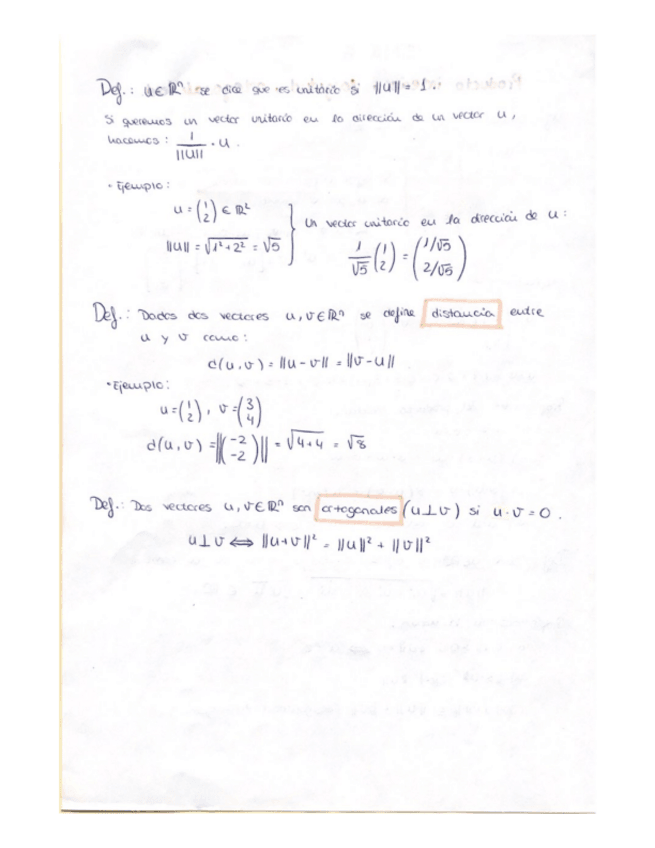 Def.: u ∈ ℝⁿ se dice que es unitario si ||u|| = 1.
Si queremos un vector unitario en la dirección de un vector u,
hacemos: 1/||u|| · u.
· Ejemplo:
u = (1 2) ∈ ℝ²
||u|| = √(1²+2²) = √5
} Un vector unitario en la dirección de u:
1/√5 (1 2) = (1/√5 2/√5)
Def.: Dados dos vectores u, v ∈ ℝⁿ se define distancia entre
u y v como:
d(u,v) = ||u - v|| = ||v - u||
· Ejemplo:
u = (1 2), v = (3 4)
d(u,v) = ||(-2 -2)|| = √(4+4) = √8
Def.: Dos vectores u, v ∈ ℝⁿ son ortogonales (u ⊥ v) si u · v = 0.
u ⊥ v ⟺ ||u+v||² = ||u||² + ||v||²